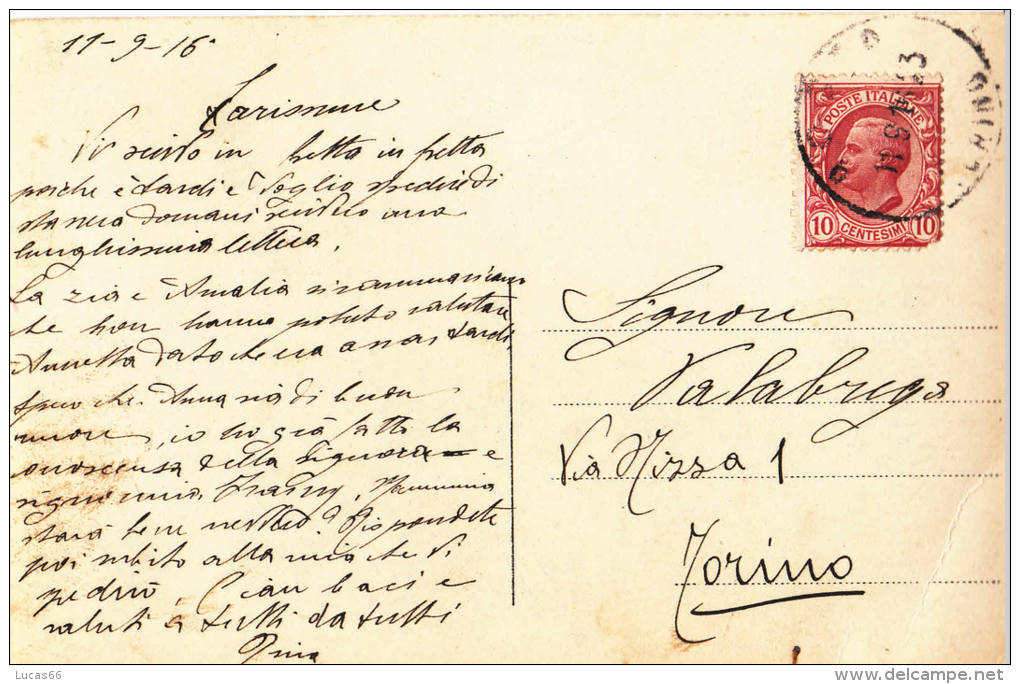 11-9-16
Carissime
Vi scrivo in fretta in fretta
perche è tardi e Voglio spedire di
stasera domani scrivero una
lunghissima lettera.
La zia e Amalia si rammaricano
che non hanno potuto salutare
Annetta dato che era assai tardi.
Spero che Anna sia di buon
umore, io ho già fatto la
conoscensa della signora e
signorina Mammina
starà bene nevvero? Rispondete
poi subito alla mia che Vi
spedirò. Cian baci e
saluti a tutti da tutti
Pina
POSTE ITALIANE
10 CENTESIMI 10
Signore
Valabrega
Via Nizza 1
Torino
Lucas66
www.delcampe.net